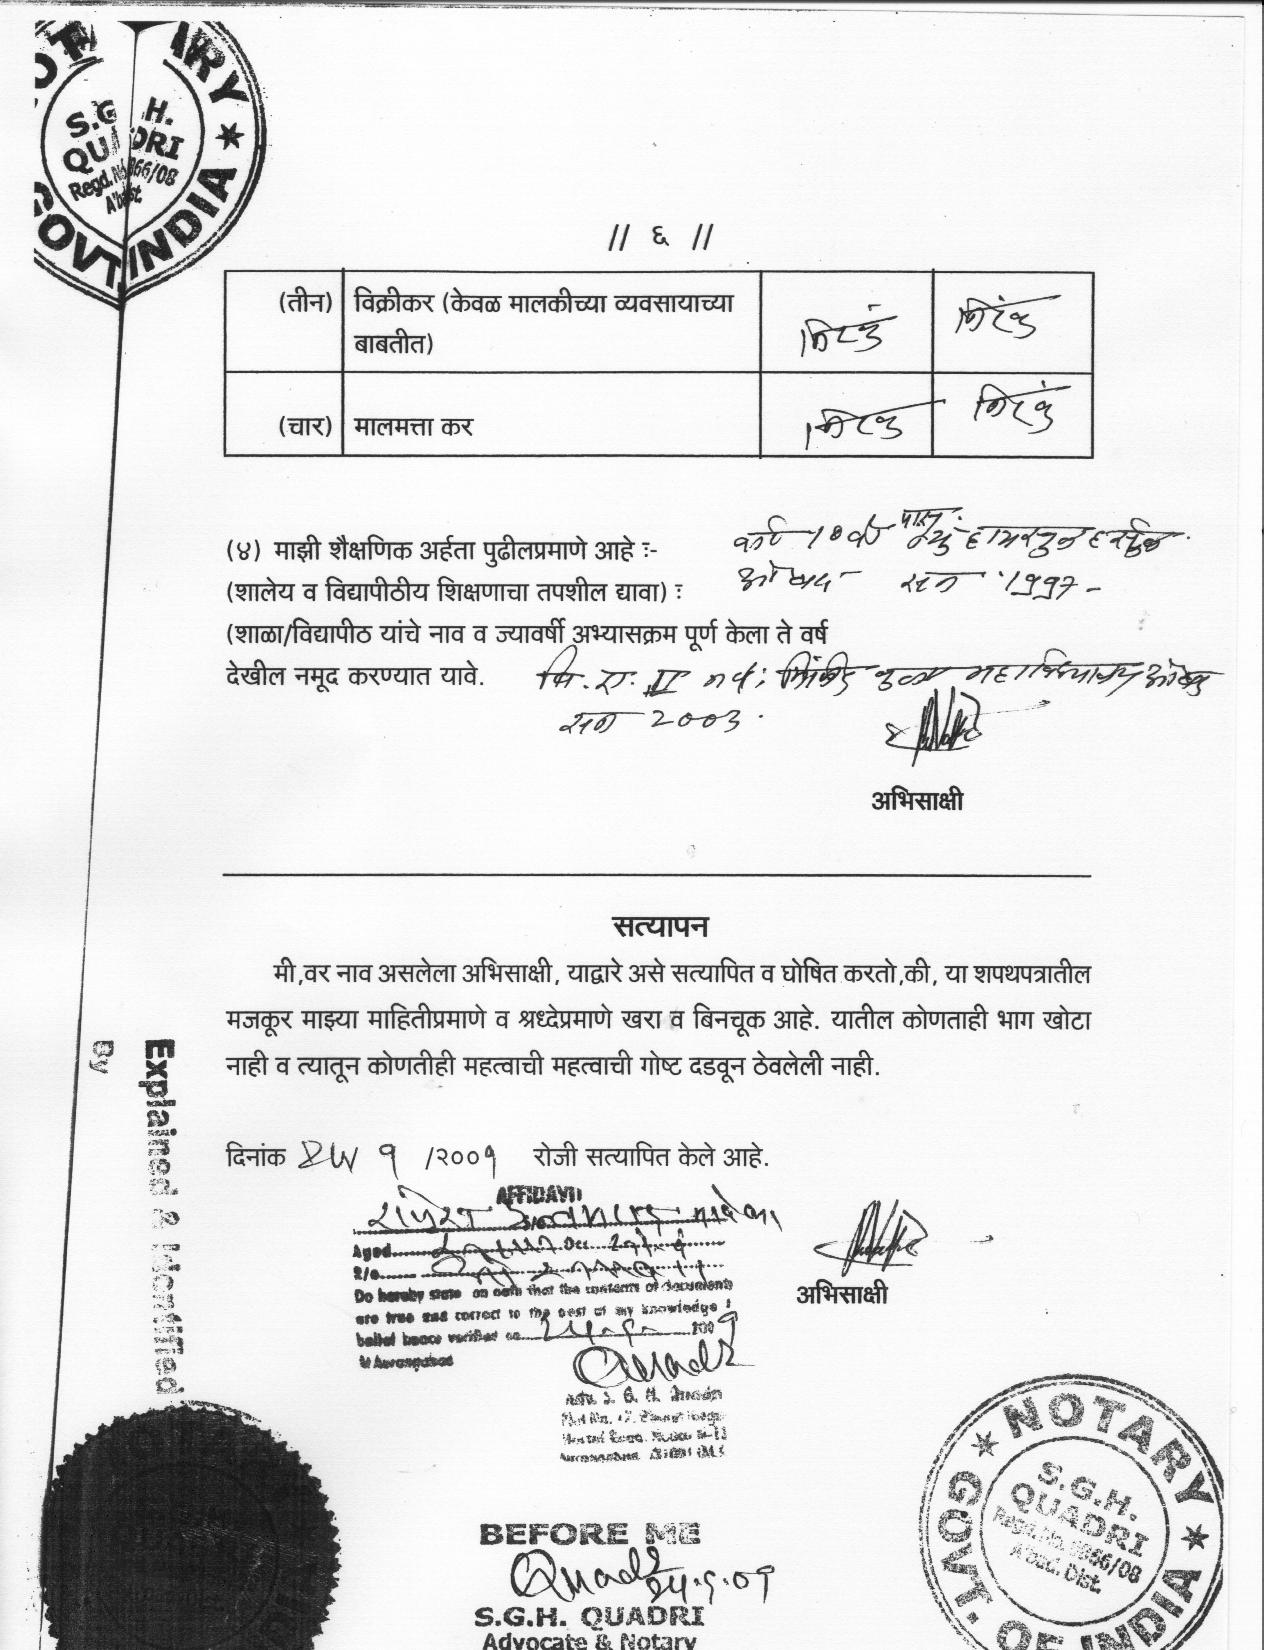 NOTARY
S.G.H.
QUADRI
Regd. No. 8866/08
A'bad. Dist.
GOVT. INDIA
// ६ //
(तीन) विक्रीकर (केवळ मालकीच्या व्यवसायाच्या बाबतीत) निरंक निरंक
(चार) मालमत्ता कर निरंक निरंक
(४) माझी शैक्षणिक अर्हता पुढीलप्रमाणे आहे :- 10 वी पास
(शालेय व विद्यापीठीय शिक्षणाचा तपशील द्यावा) : सन 1997
(शाळा/विद्यापीठ यांचे नाव व ज्यावर्षी अभ्यासक्रम पूर्ण केला ते वर्ष
देखील नमूद करण्यात यावे. बि.ए. II महाविद्यालय
सन 2003.
अभिसाक्षी
सत्यापन
मी,वर नाव असलेला अभिसाक्षी, याद्वारे असे सत्यापित व घोषित करतो,की, या शपथपत्रातील
मजकूर माझ्या माहितीप्रमाणे व श्रध्देप्रमाणे खरा व बिनचूक आहे. यातील कोणताही भाग खोटा
नाही व त्यातून कोणतीही महत्वाची महत्वाची गोष्ट दडवून ठेवलेली नाही.
Explained & Identified
By
दिनांक 9 /२००9 रोजी सत्यापित केले आहे.
AFFIDAVIT
Aged Occ
R/o
Do hereby state on oath that the contents of documents
are true and correct to the best of my knowledge &
belief hence verified on 24.9. 2009
at Aurangabad
अभिसाक्षी
Quadri
Adv. S. G. H. Quadri
BEFORE ME
Quadri
24.9.09
S.G.H. QUADRI
Advocate & Notary
NOTARY
S.G.H.
QUADRI
Regd. No. 8866/08
A'bad. Dist.
GOVT. OF INDIA